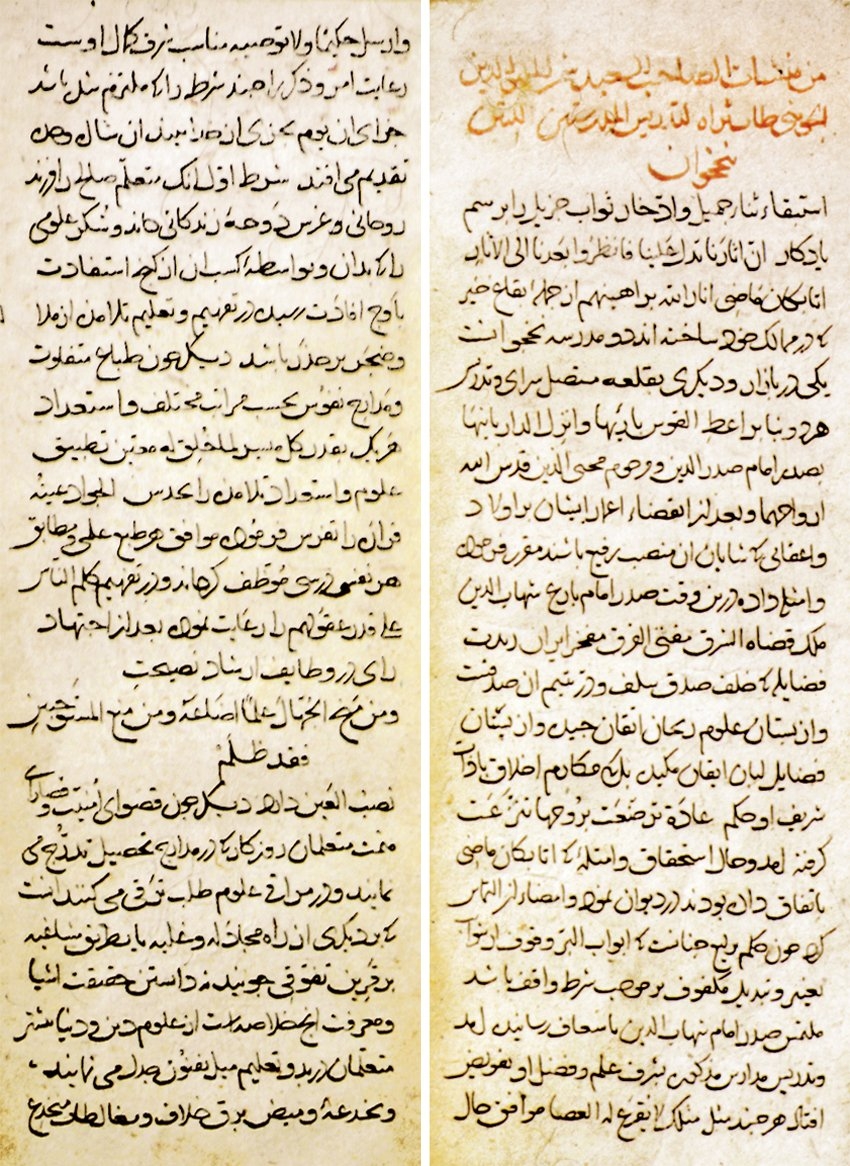 من منشآت الصاحب السعید شمس الدین
الجوینی طاب ثراه لتدریس المدرستین اللتین
بنخجوان
استبقاء ثنا جمیل و ادّخار ثواب جزیل را بر سم
یادکار انّ آثارنا تدلّ علینا فانظروا بعدنا الی الآثار
اتابکان ماضی انار الله براهینهم از جملهٔ بقاع خیر
که در ممالک خود ساخته اند دو مدرسه نخجوانست
یکی در بازار و دیکری بقلعه متصل سرای و تدریس
هر دو بنا بر اعط القوس باریها و انزل الدار بانیها
بصدر امام صدر الدین و مرحوم محیی الدین قدس الله
ارواحهما و بعد از انقضاء اعمار ایشان بر اولاد
و اعقابی که شایان آن منصب رفیع باشند مقرر فرموده
و امثله داده درین وقت صدر امام بارع شهاب الدین
ملک قضاة الشرق مفتی الفرق مفخر ایران زیدت
فضایله که خلف صدق سلف و در یتیم آن صدفست
و از بستان علوم ریحان اتقان چیده و از پستان
فضایل لبان ایقان مکیده بل که مکارم اخلاق با ذات
شریف او حکم عادة ترضّعت بروحها تنزّعت
کرفته بود و حال استحقاق و امثلهٔ که اتابکان ماضی
باتفاق داده بودند در دیوان نموده و امضاء آن التماس
کرده چون حکم یرلیغ جنانست که ابواب البرّ و وقوف از شوایب
تغییر و تبدیل مکفوف بر موجب شرط واقف باشد
ملتمس صدر امام شهاب الدین باسعاف رسانیده آمد
و تدریس مدارس مذکوره بشرف علم و فضل او تفویض
افتاد هر چند مثل مثلک لا یقرع له العصا موافق حال
و ارسل حکیما و لا توصه مناسب شرف کمال اوست
رعایت امر و ذکر را چند شرط را که ملتزم مثل باشد
تقدیم می افتد شرط اول آنک متعلّم صالح را فرزند
روحانی و غرس دوحهٔ زندکانی داند و شکر علومی
را که بدان و بواسطهٔ اکتساب آن از استفادت
باوج افادت رسیده در تفهیم و تعلیم تلامذه از ملال
و ضجرت بر حذر باشد دیکر چون طباع متفاوت
و مدارج نفوس بحسب مراتب مختلف و استعداد
هر یک بقدر کل میسر لما خلق له معیّن تطبیق
علوم و استعداد تلامذه را بحدس الجواد عینه
فراره را تفرّس فرموده موافق هر طبع علمی و مطابق
هر نفسی درسی موظّف کرداند و در تفهیم کلّم الناس
علی قدر عقولهم را رعایت نموده بعد از اجتهاد
رای در وظایف ارشاد نصیحت
و من منح الجهّال علماً اضاعه و من منع المستوجبین
فقد ظلم
نصب العین دارد دیکر چون قصوای امنیّت و قصارای
همّت متعلمان روزکار که در مدارج تحصیل تدرّج می
نمایند و در مراقی علوم طلب ترقّی می کنند آنست
که بر دیکری از راه مجادله و مغالبه یا بطریق سفسطه
بر قرین تفوّقی جویند نه دانستن حقیقت اشیا
و معرفت آنچ خلاصهٔ است از علوم دین و دنیا بیشتر
متعلّمان در بدو تعلیم میل بفنون جدل می نمایند
و بخدعهٔ ومیض برق خلاف و مغالطه منخدع